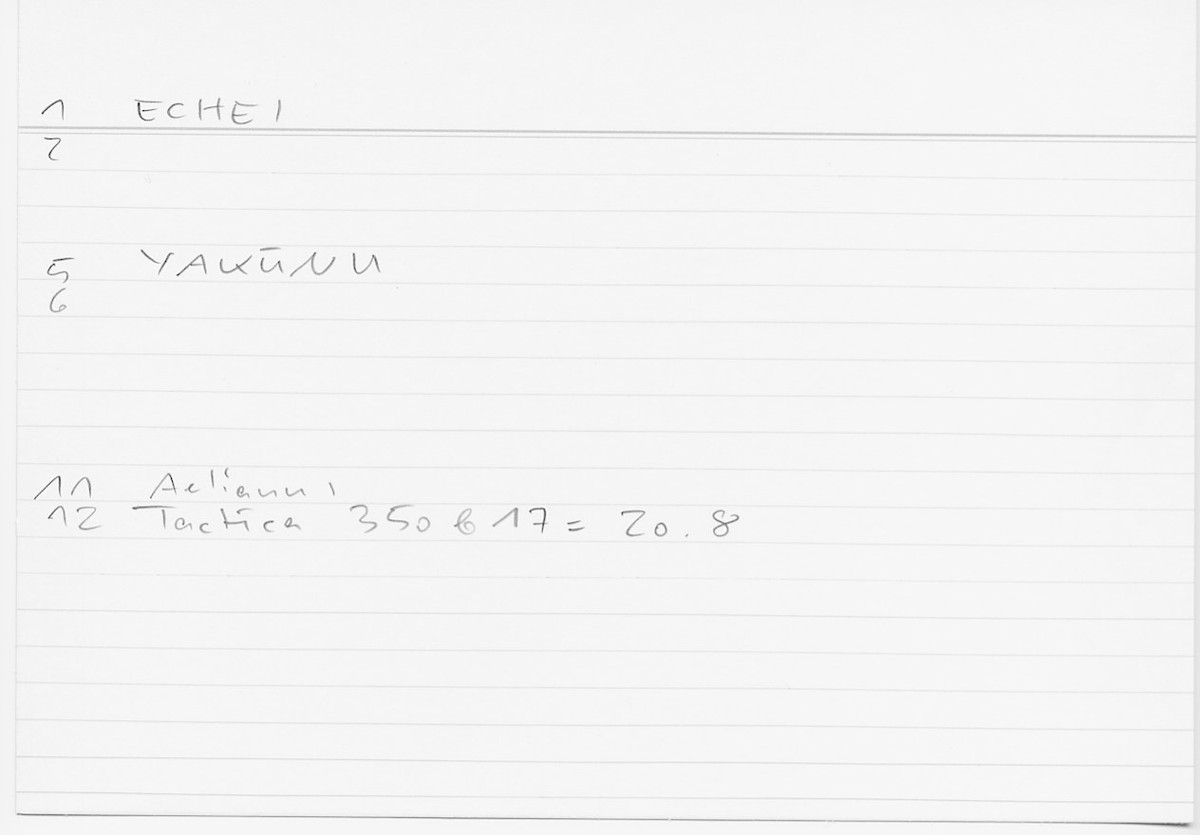 1 ECHEI
2
5 YAKŪNU
6
11 Aeliani
12 Tactica 350 b 17 = 20.8